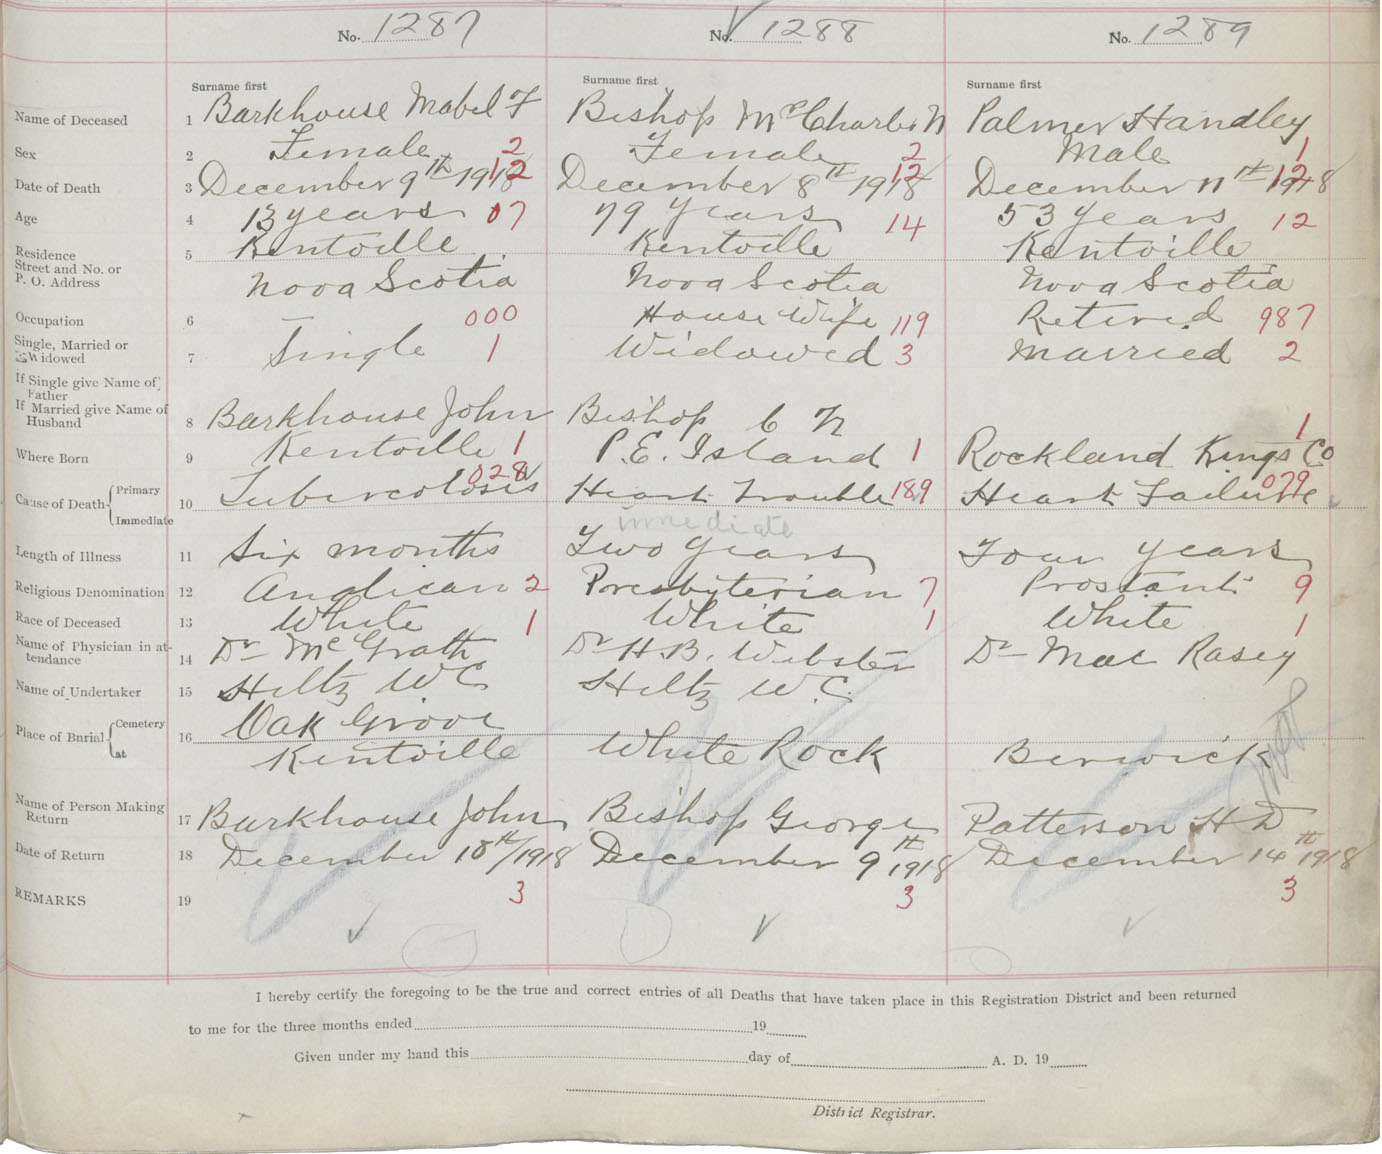 No. 1287 No. 1288 No. 1289
Surname first Surname first Surname first
Name of Deceased 1 Barkhouse Mabel F Bishop Mrs Charles N Palmer Handley
Sex 2 Female 2 Female 2 Male 1
Date of Death 3 December 9th 1918 12 December 8th 1918 12 December 11th 1918 12
Age 4 13 years 07 79 years 14 53 years 12
Residence 5 Kentville Kentville Kentville
Street and No. or
P. O. Address Nova Scotia Nova Scotia Nova Scotia
Occupation 6 000 House Wife 119 Retired 987
Single, Married or
Widowed 7 Single 1 Widowed 3 Married 2
If Single give Name of
Father
If Married give Name of
Husband 8 Barkhouse John Bishop C N 1
Where Born 9 Kentville 1 P.E. Island 1 Rockland Kings Co
Cause of Death Primary 10 Tuberculosis 028 Heart Trouble 189 Heart Failure 079
Immediate immediate
Length of Illness 11 Six months Two years Four years
Religious Denomination 12 Anglican 2 Presbyterian 7 Prostant 9
Race of Deceased 13 White 1 White 1 White 1
Name of Physician in at-
tendance 14 Dr McGrath Dr H.B. Webster Dr Mac Rasey
Name of Undertaker 15 Hiltz W C Hiltz W.C.
Place of Burial Cemetery 16 Oak Grove
at Kentville White Rock Berwick
Name of Person Making
Return 17 Barkhouse John Bishop George Patterson H D
Date of Return 18 December 10th/1918 December 9th 1918 December 14th 1918
REMARKS 19 3 3 3
I hereby certify the foregoing to be the true and correct entries of all Deaths that have taken place in this Registration District and been returned
to me for the three months ended 19
Given under my hand this day of A. D. 19
District Registrar.